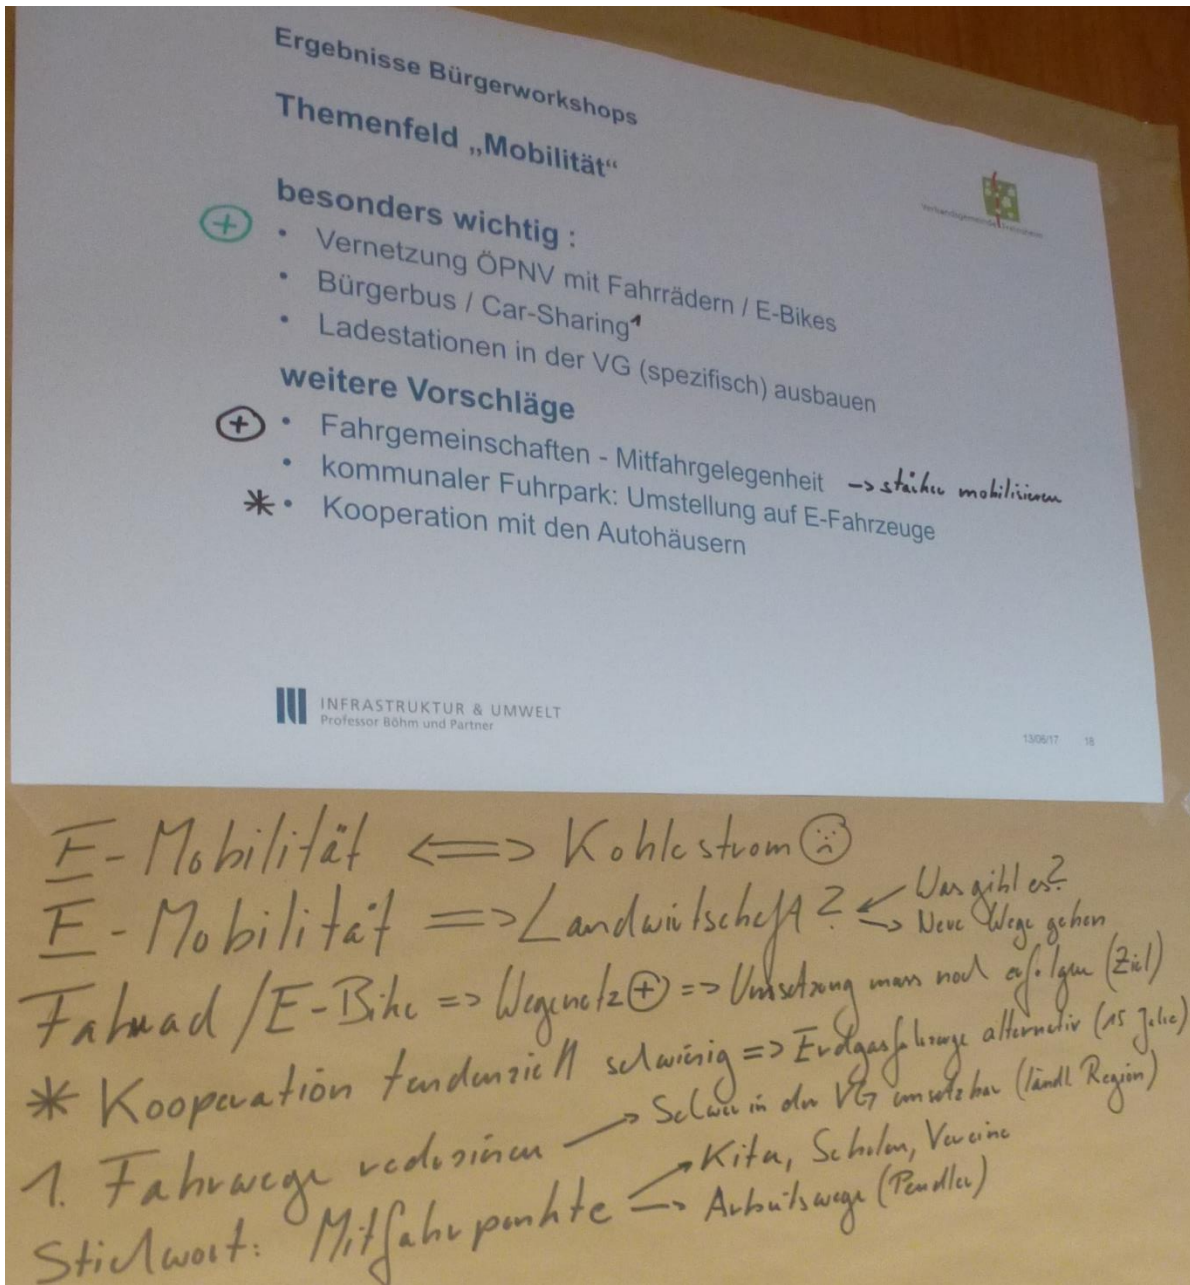 Ergebnisse Bürgerworkshops
Themenfeld „Mobilität“
besonders wichtig :
⊕ • Vernetzung ÖPNV mit Fahrrädern / E-Bikes
• Bürgerbus / Car-Sharing¹
• Ladestationen in der VG (spezifisch) ausbauen
weitere Vorschläge
⊕ • Fahrgemeinschaften - Mitfahrgelegenheit -> stärker mobilisieren
• kommunaler Fuhrpark: Umstellung auf E-Fahrzeuge
* • Kooperation mit den Autohäusern
Verbandsgemeinde
INFRASTRUKTUR & UMWELT
Professor Böhm und Partner
13/06/17 18
E-Mobilität <=> Kohlestrom ☹
E-Mobilität => Landwirtschaft? Was gibt es?
-> Neue Wege gehen
Fahrrad / E-Bike => Wegenetz ⊕ => Umsetzung muss noch erfolgen (Ziel)
* Kooperation tendenziell schwierig => Erdgasfahrzeuge alternativ (15 Jahre)
1. Fahrwege reduzieren -> Schwer in der VG umsetzbar (ländl Region)
Stichwort: Mitfahrpunkte -> Kita, Schulen, Vereine
-> Arbeitswege (Pendler)